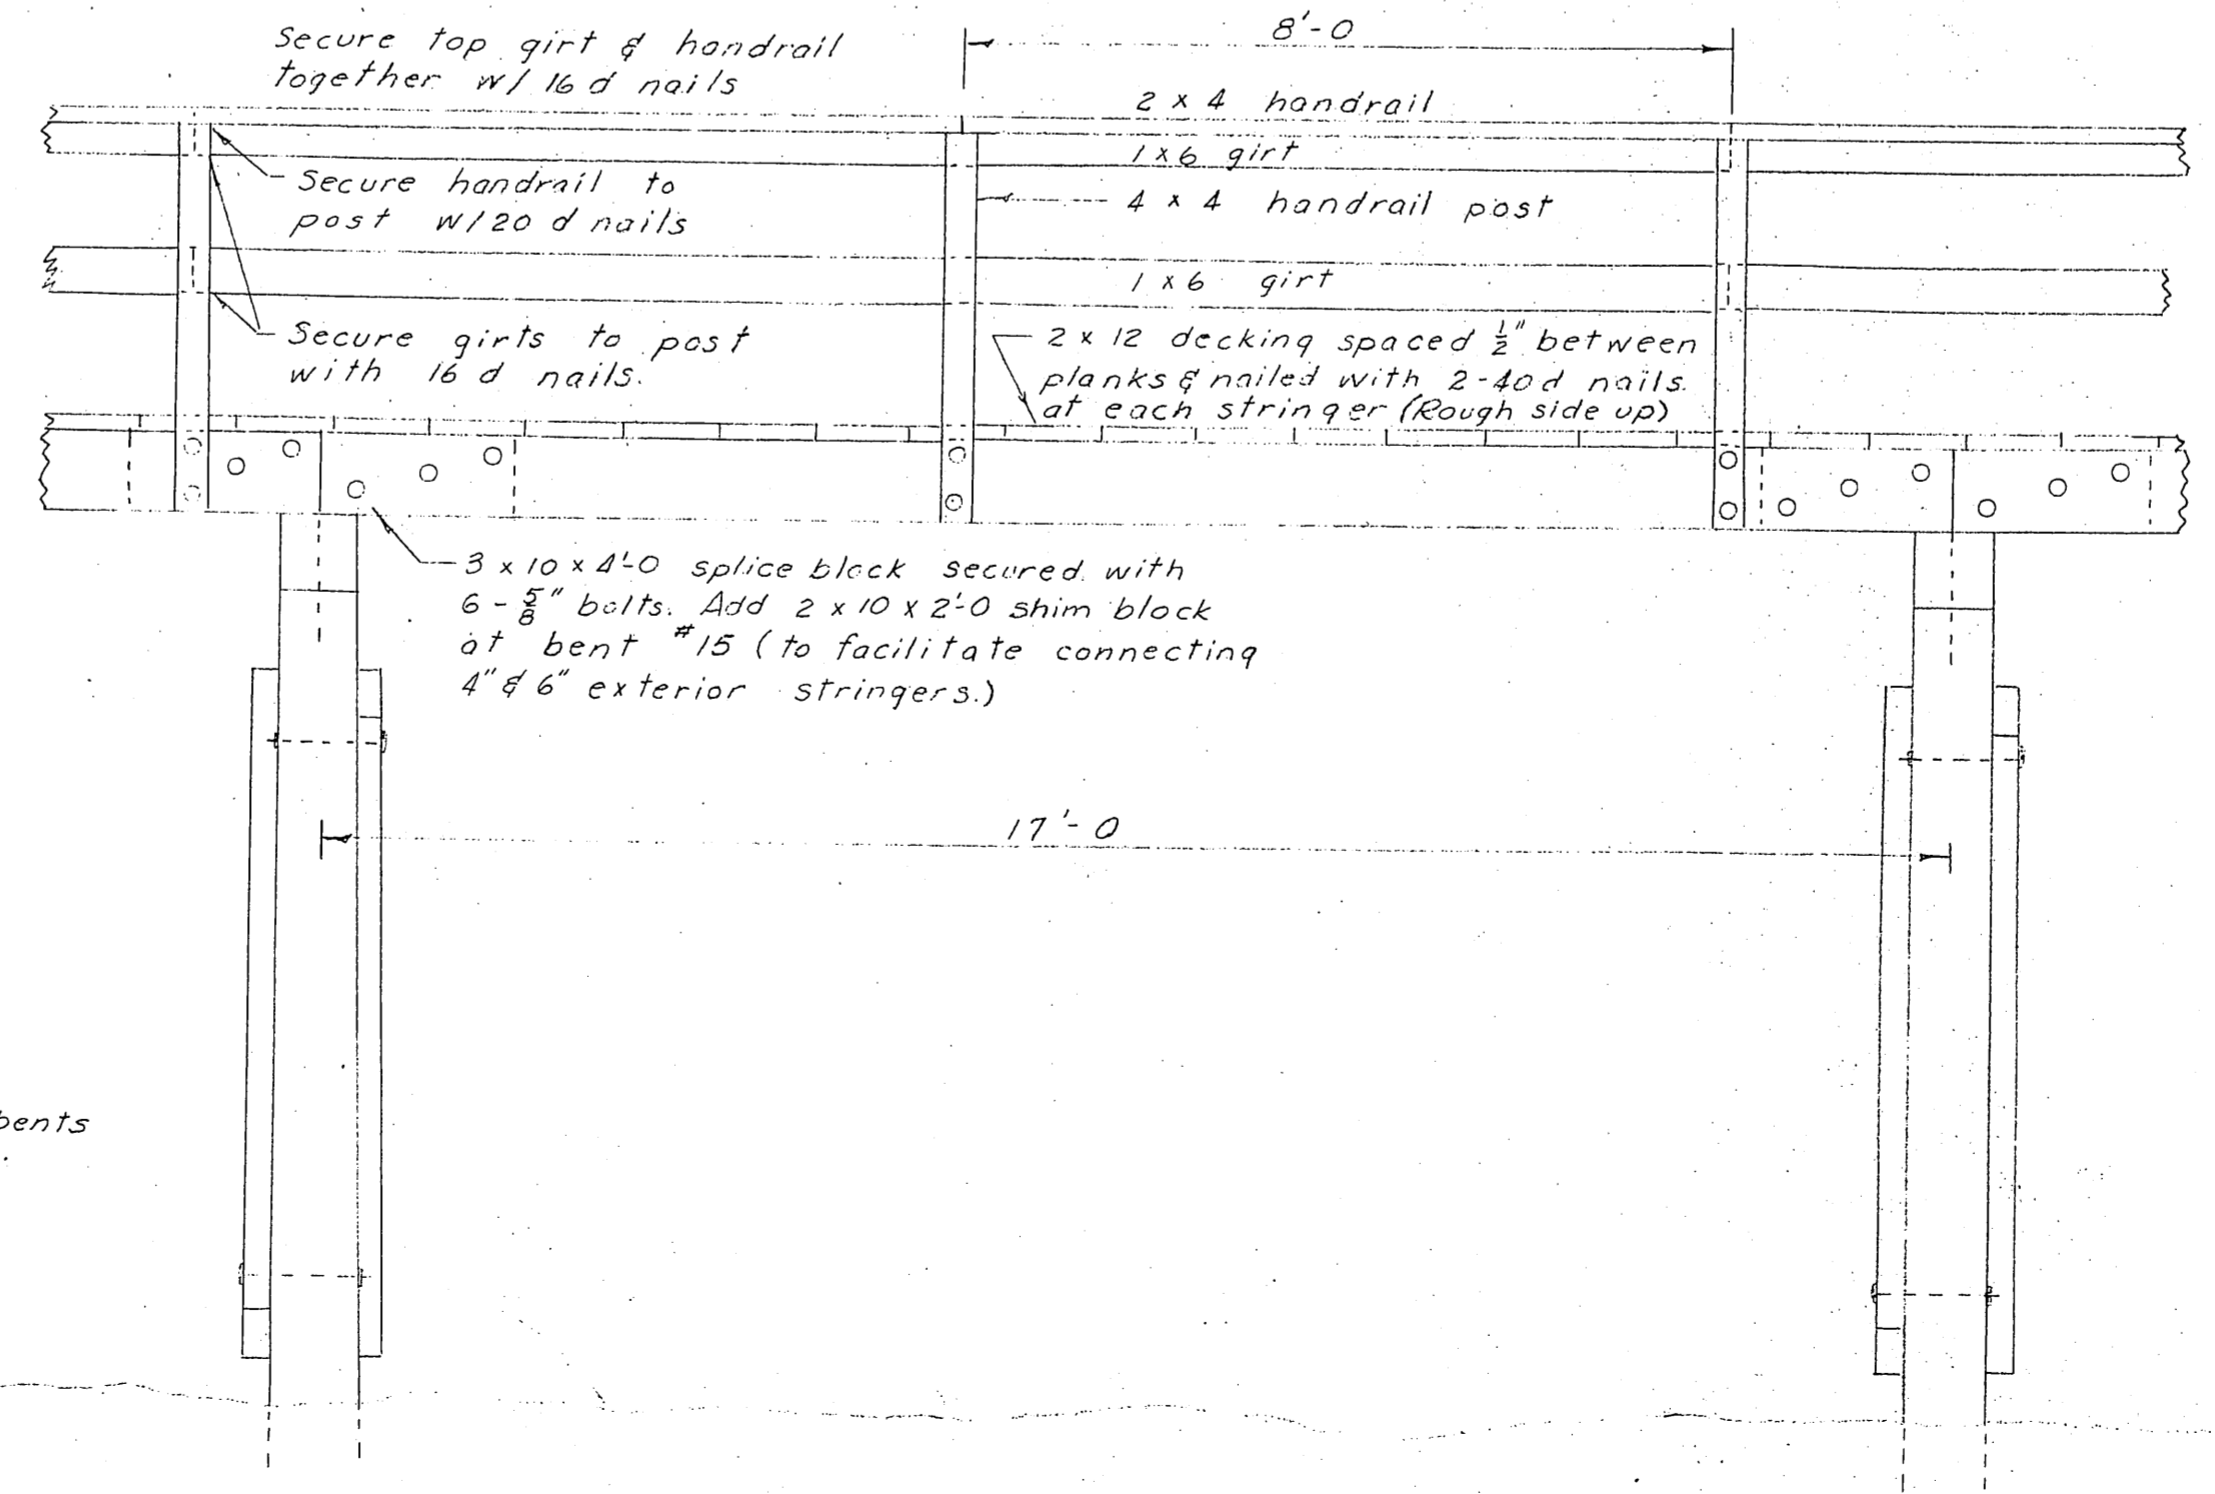 Secure top girt & handrail
together w/ 16 d nails
8'-0
2 x 4 handrail
1 x 6 girt
Secure handrail to
post w/ 20 d nails
4 x 4 handrail post
1 x 6 girt
Secure girts to post
with 16 d nails.
2 x 12 decking spaced ½" between
planks & nailed with 2-40d nails.
at each stringer (Rough side up)
3 x 10 x 4'-0 splice block secured with
6 - ⅝" bolts. Add 2 x 10 x 2'-0 shim block
at bent #15 (to facilitate connecting
4" & 6" exterior stringers.)
17'-0
bents